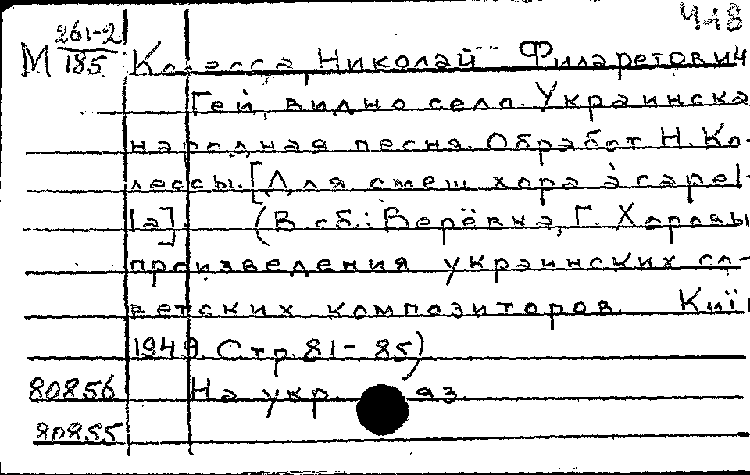 448
М 261-2/185 Колесса, Николай Филаретович
Гей, видно села. Украинска
народная песня. Обработ Н. Ко-
лессы. [Для смеш хора a capel-
la]. (В сб.: Верёвка, Г. Хоровы
произведения украинских со-
ветских композиторов. Київ
1949. Стр. 81-85)
80856 На укр. яз.
80855